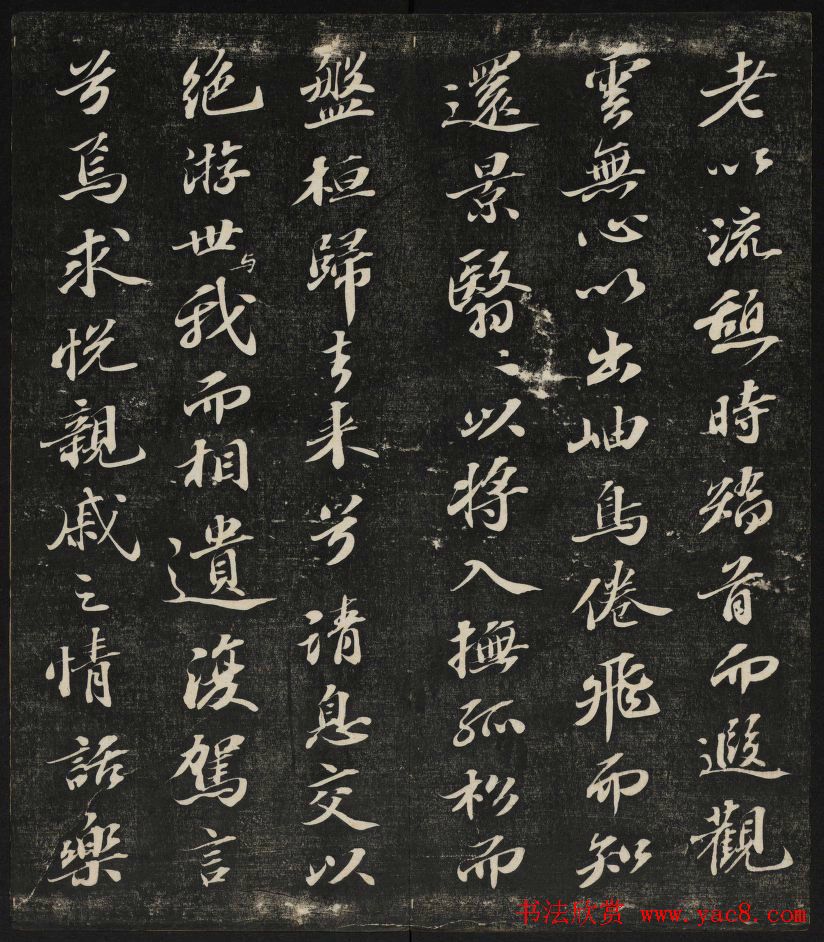 老以流憩時矯首而遐觀
雲無心以出岫鳥倦飛而知
還景翳〻以將入撫孤松而
盤桓歸去来兮請息交以
绝游世与我而相遺復駕言
兮焉求悦親戚之情話樂
书法欣赏 www.yac8.com